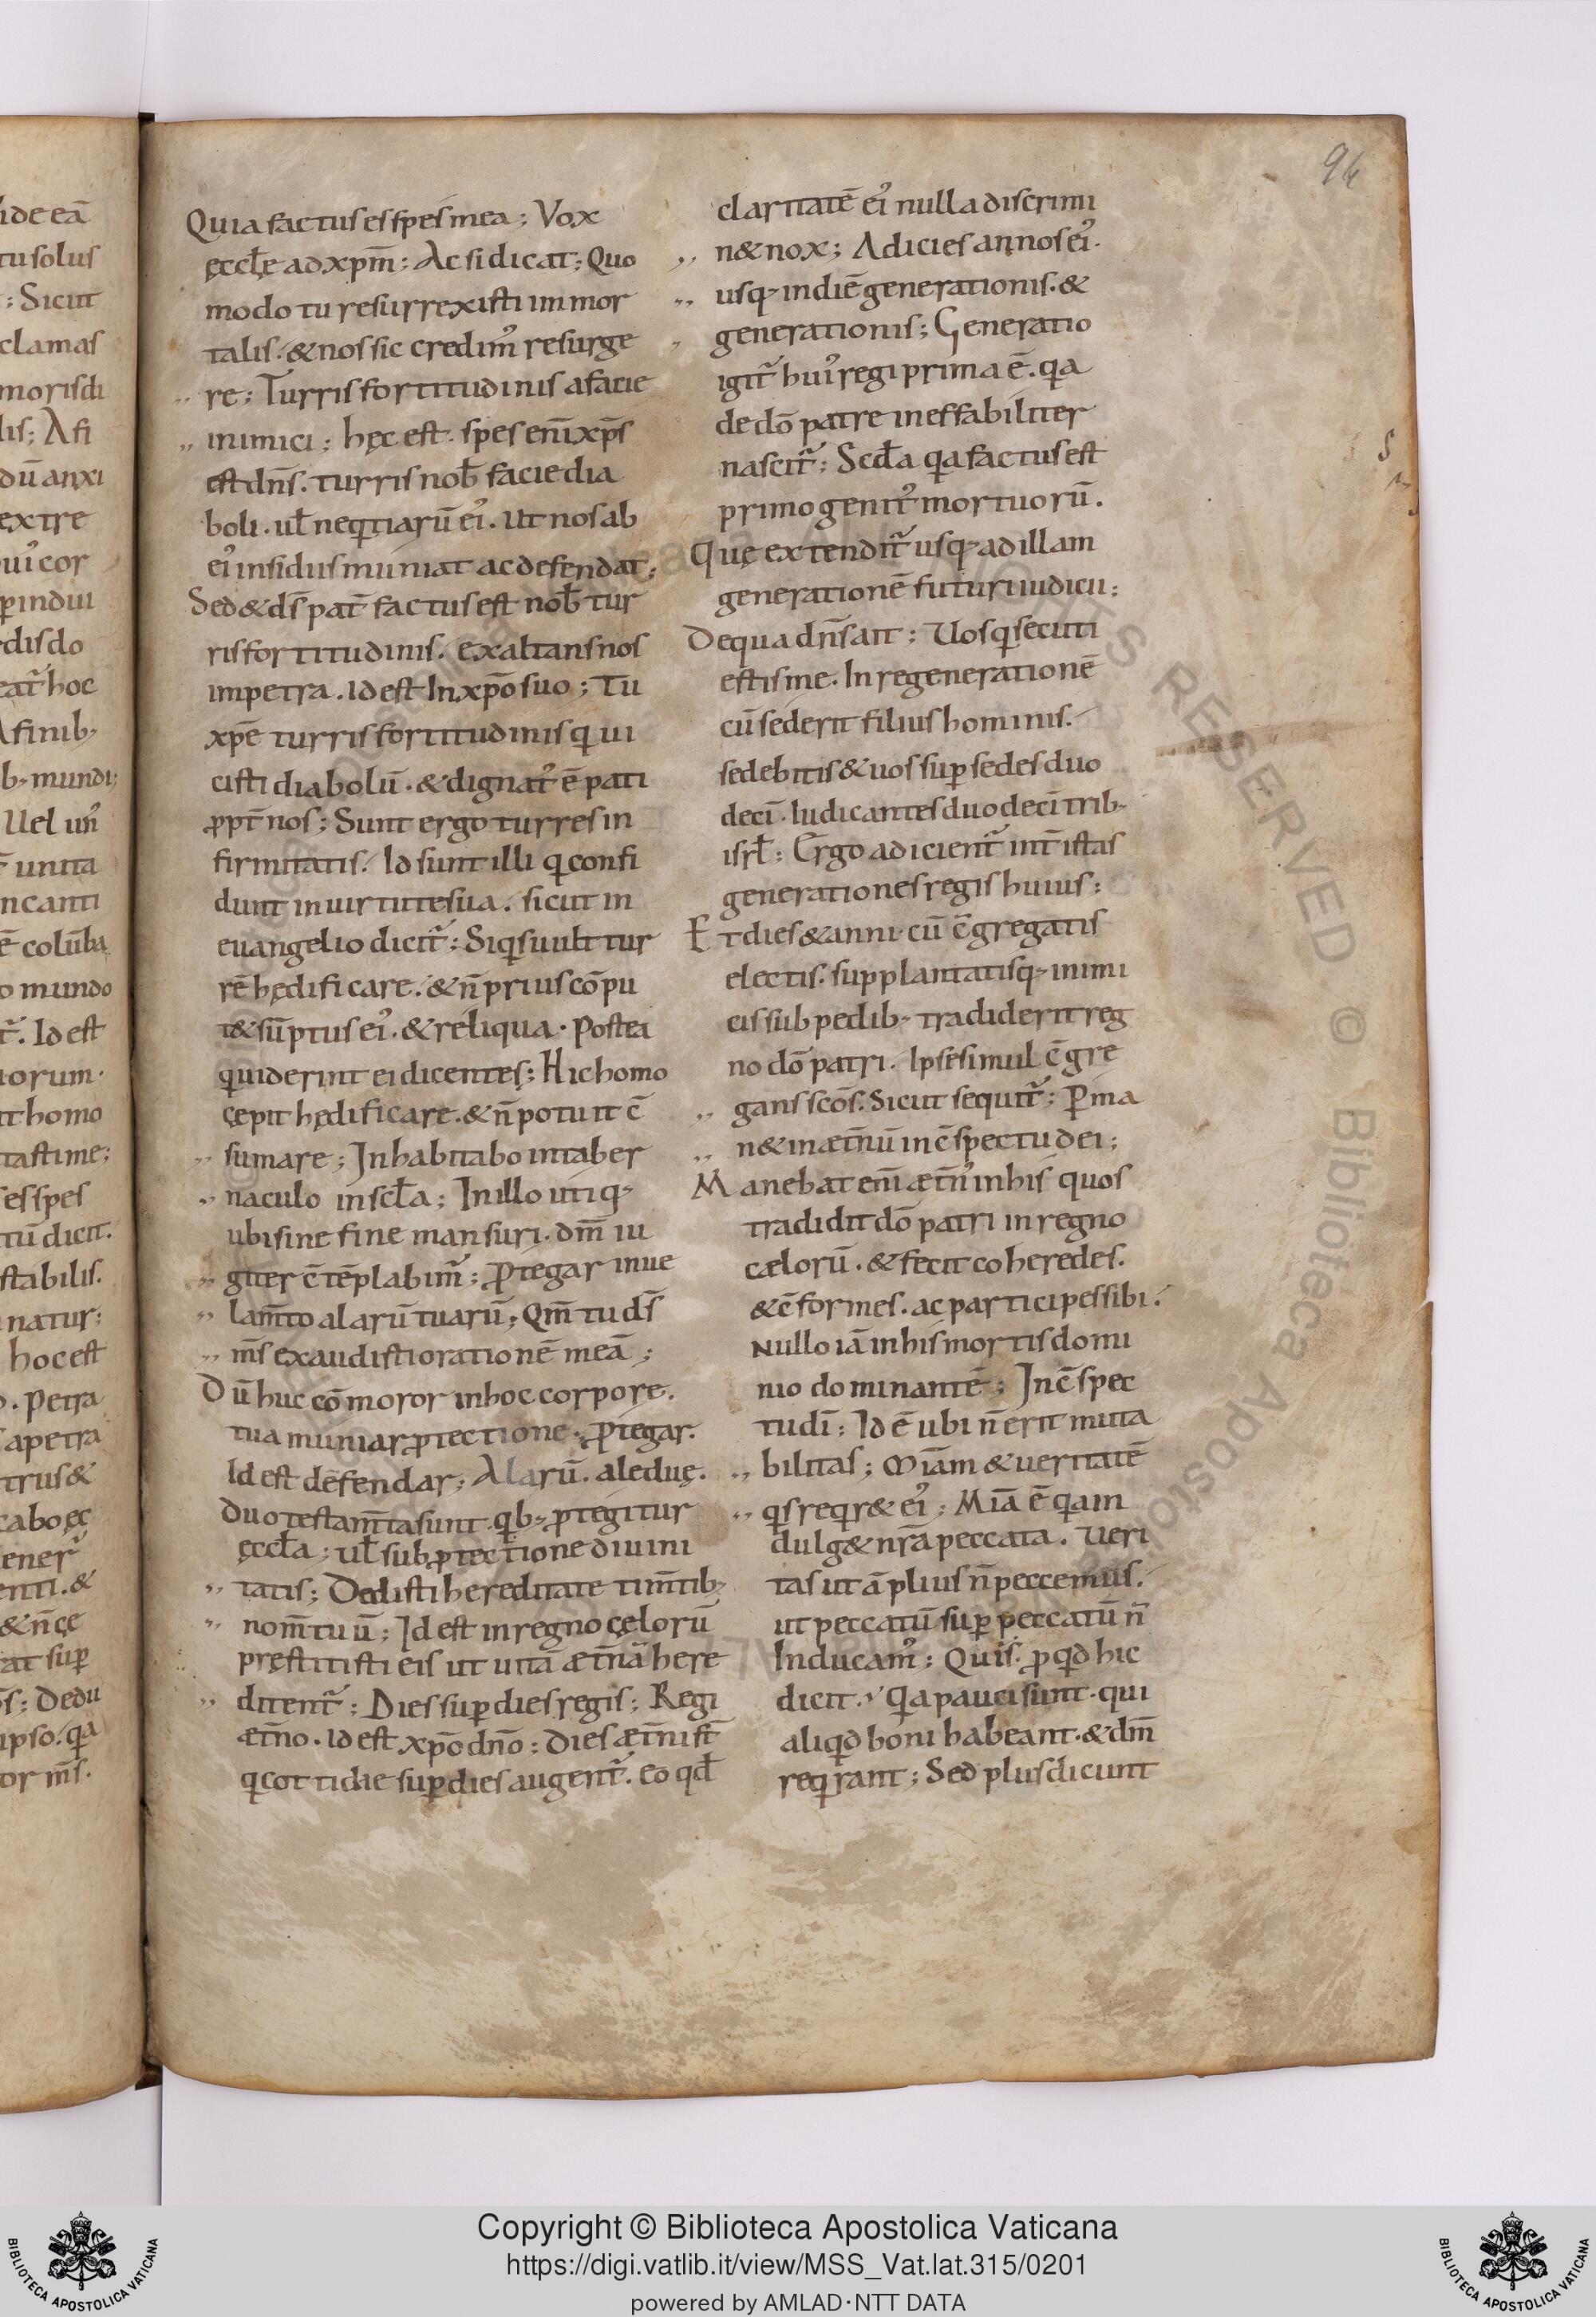 ide eā
tu solus
: Sicut
clamas
moris di
lis; A fi
dū anxi
extre
ui᷒ cor
ꝑ indui
rdis do
eat᷑ hoc
A finib;
b; mundi;
Uel un᷒
unita
n canti
ē colūba
o mundo
t᷑. Id est
iorum.
it homo
tasti me;
es spes
tū dicit.
stabilis.
natur;
hoc est
o. Petra
a petra
trus &
cabo ęc
ener᷑
enti. &
& n̄ cę
at suꝑ
s; Dedu
ipso. qa
or m̄s.
94
Quia factus es spes mea; Vox
ęccłę ad xp̄m; Ac si dicat; Quo
modo tu resurrexisti immor
talis. & nos sic credim᷒ resurge
re; Turris fortitudinis a facie
inimici; hęc est. spes eni᷒ xp̄s
est dn̄s. turris nob̄ facie dia
boli. uł neqtiarū ei᷒. Ut nos ab
ei᷒ insidiis muniat ac defendat;
Sed & ds̄ pat̄ factus est nob̄ tur
ris fortitudinis. exaltans nos
in petra. Id est In xp̄o suo; Tu
xp̄e turris fortitudinis q ui
cisti diabolū. & dignat᷒ ē pati
ꝓpt̄ nos; Sunt ergo turres in
firmitatis. Id sunt illi q confi
dunt in uirtute sua. sicut in
euangelio dicit᷑; Siqs uult tur
rē hędificare. & n̄ prius cōpu
t& sūptus ei᷒. & reliqua. Postea
quiderint ei dicentes; Hic homo
cępit hędificare. & n̄ potuit c̄
sumare; Inhabitabo in taber
naculo in scła; In illo utiq;
ubi sine fine mansuri. dm̄ iu
giter c̄tēplabim᷑; Ꝓtegar in ue
lam̄to alarū tuarū; Qm̄ tu ds̄
m̄s exaudisti orationē meā;
Dū huc cōmoror in hoc corpore.
tua muniar ꝓtectione. ꝓtegar.
Id est defendar; Alarū. alę duę.
Duo testam̄ta sunt. qb; ꝓtegitur
ęccła; uł sub ꝓtectione diuini
tatis; Dedisti hereditatē tim̄tib;
nom̄ tuū; Id est in regno cęlorū
pręstitisti eis ut uitā æt̄nā here
ditent᷑; Dies suꝑ dies regis; Regi
æt̄no. Id est xp̄o dn̄o; Dies æt̄ni st̄
q cottidie suꝑ dies augent᷑. eo qđ
claritatē ei᷒ nulla discrimi
n& nox; Adicies annos ei᷒.
usq; in diē generationis. &
generationis; Generatio
igit᷑ hui᷒ regi prima ē. qa
de dō patre ineffabiliter
nascit᷑; Scđa qa factus est
primogenit᷒ mortuorū.
Quę extendit᷑ usq; ad illam
generationē futuri iudicii;
De qua dn̄s ait; Uos q secuti
estis me. In regenerationē
cū sederit filius hominis.
sedebitis & uos suꝑ sedes duo
deci᷒. Iudicantes duodeci᷒ trib;
isrł; Ergo adicient᷑ int̄ istas
generationes regis huius;
Et dies & anni. cū c̄gregatis
electis. supplantatisq; inimi
cis sub pedib; tradiderit reg
no dō patri. Ipse simul c̄gre
gans scōs. Sicut sequit᷑; Ꝑma
n& in æt̄nū in c̄spectu dei;
Manebat eni᷒ æt̄n᷒ in his quos
tradidit dō patri in regno
cælorū. & fecit coheredes.
& c̄formes. ac participes sibi.
Nullo iā in his mortis domi
nio dominante; In c̄spec
tu di᷒; Id ē ubi n̄ erit muta
bilitas; Mi᷒am & ueritatē
qs reqr& ei᷒; Mi᷒a ē qa in
dulg& nr̄a peccata. Ueri
tas ut āplius n̄ peccemus.
ut peccatū suꝑ peccatū n̄
Inducam᷒; Quis. ꝓ qd hic
dicit. Qa pauci sunt. qui
aliqd boni habeant. & dm̄
reqrant; Sed plus dicunt
Copyright © Biblioteca Apostolica Vaticana
https://digi.vatlib.it/view/MSS_Vat.lat.315/0201
powered by AMLAD·NTT DATA
BIBLIOTECA APOSTOLICA VATICANA
BIBLIOTECA APOSTOLICA VATICANA